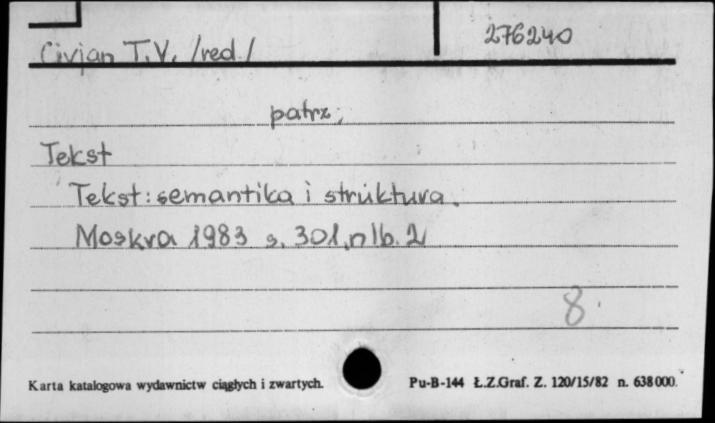 Civjan T.V. /red./ 276240
patrz,
Tekst
Tekst: semantika i struktura.
Moskva 1983 s. 301, nlb. 2
8.
Karta katalogowa wydawnictw ciągłych i zwartych. Pu-B-144 Ł.Z.Graf. Z. 120/15/82 n. 638000.